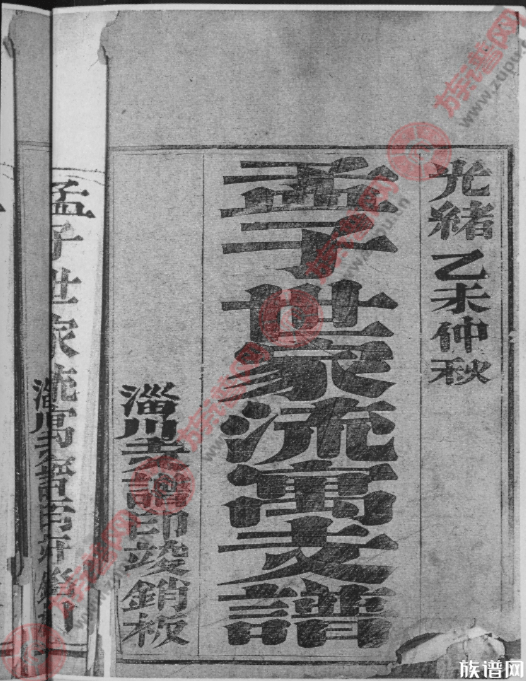 光緒乙未仲秋
孟子世家流寓支譜
淄川支譜印竣銷板
孟子世家流寓
族谱网
www.zupu.cn
族谱网